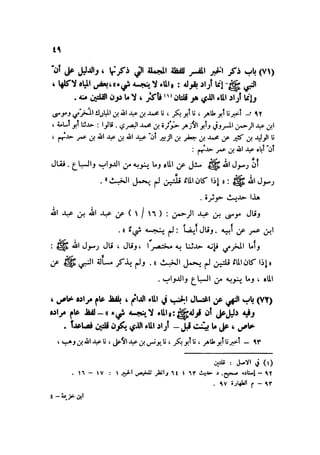 ٤٩
(٧١) باب ذكر الخبر المفسر للفظة المجملة التي ذكرتها ، والدليل على أن
النبي ﷺ إنما أراد بقوله : «الماء لا ينجسه شيء» بعض المياه لا كلها ،
وإنما أراد الماء الذي هو قلتان (١) فأكثر ، لا ما دون القلتين منه .
٩٢ ـ أخبرنا أبو طاهر ، نا أبو بكر ، نا محمد بن عبد الله بن المبارك المخرّمي وموسى
ابن عبد الرحمن المسروقي وأبو الأزهر حوثرة بن محمد البصري . قالوا : حدثنا أبو أسامة ،
نا الوليد بن كثير عن محمد بن جعفر بن الزبير أن عبد الله بن عبد الله بن عمر حدثهم ،
أن أباه عبد الله بن عمر حدثهم :
أن رسول الله ﷺ سئل عن الماء وما ينوبه من الدواب والسباع . فقال
رسول الله ﷺ : «إذا كان الماء قلتين لم يحمل الخبث» .
هذا حديث حوثرة .
وقال موسى بن عبد الرحمن : (١٦ / ١) عن عبد الله بن عبد الله
ابن عمر عن أبيه . وقال أيضاً : لم ينجسه شيء» .
وأما المخرمي فإنه حدثنا به مختصراً ، وقال : قال رسول الله ﷺ :
«إذا كان الماء قلتين لم يحمل الخبث» . ولم يذكر مسألة النبي ﷺ عن
الماء ، وما ينوبه من السباع والدواب .
(٧٢) باب النهي عن اغتسال الجنب في الماء الدائم ، بلفظ عام مراده خاص ،
وفيه دليل على أن قوله ﷺ: «الماء لا ينجسه شيء» ـ لفظ عام مراده
خاص ، على ما بيّنت قبل ـ أراد الماء الذي يكون قلتين فصاعداً .
٩٣ ـ أخبرنا أبو طاهر ، نا أبو بكر ، نا يونس بن عبد الأعلى ، نا عبد الله بن وهب ،
(١) في الأصل : قلتين
٩٢ ـ إسناده صحيح. د حديث ٦٣ ؛ ٦٤ وانظر تلخيص الحبير ١ : ١٧ ـ ١٦ .
٩٣ ـ م الطهارة ٩٧ .
ابن خزيمة ـ ٤